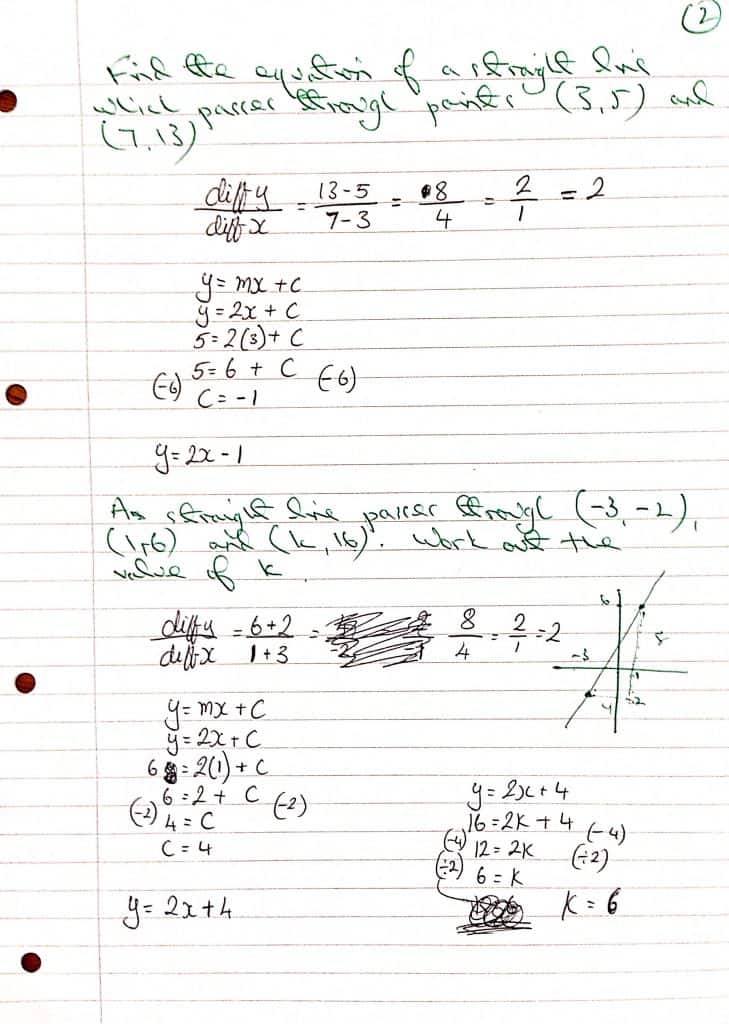 (2)
Find the equation of a straight line
which passes through points (3,5) and
(7,13)
diff y / diff x = 13-5 / 7-3 = 8 / 4 = 2 / 1 = 2
y = mx + c
y = 2x + c
5 = 2(3) + c
(-6) 5 = 6 + c (-6)
c = -1
y = 2x - 1
A straight line passes through (-3,-2),
(1,6) and (k,16). Work out the
value of k
diff y / diff x = 6+2 / 1+3 = 8 / 4 = 2 / 1 = 2
6
8
-3
1
4
-2
y = mx + c
y = 2x + c
6 = 2(1) + c
(-2) 6 = 2 + c (-2)
4 = c
c = 4
y = 2x + 4
y = 2x + 4
16 = 2k + 4
(-4) 12 = 2k (-4)
(÷2) 6 = k (÷2)
k = 6